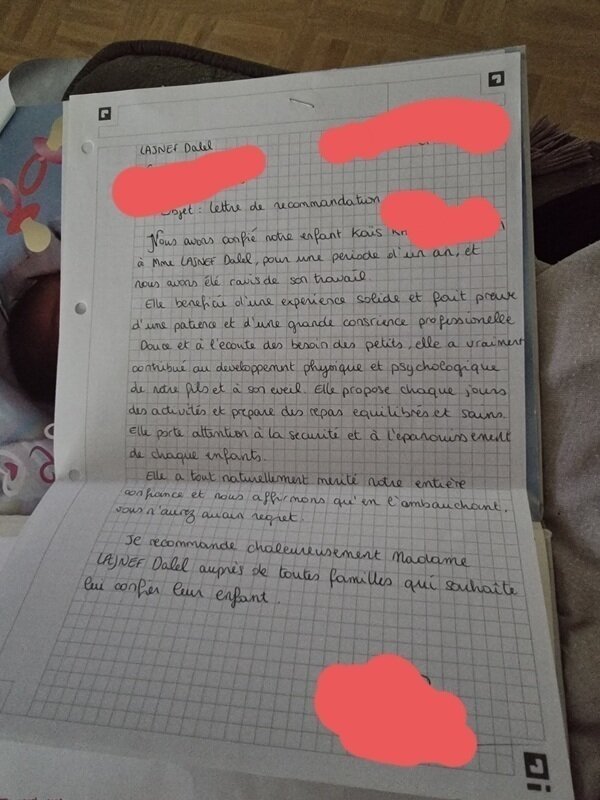 LAJNEF Dalel
Objet : lettre de recommandation
Nous avons confié notre enfant Kais
à Mme LAJNEF Dalel, pour une période d'un an, et
nous avons été ravis de son travail.
Elle beneficie d'une experience solide et fait preuve
d'une patience et d'une grande conscrience professionelle
Douce et à l'ecoute des besoin des petits, elle a vraiment
contribué au developpement physique et psychologique
de notre fils et à son eveil. Elle propose chaque jours
des activités et prepare des repas equilibrés et sains.
Elle porte attention à la securité et à l'epanouissement
de chaque enfants.
Elle a tout naturellement merité notre entière
confiance et nous affirmons qu'en l'ambauchant,
vous n'aurez aucun regret.
Je recommande chaleureusement Madame
LAJNEF Dalel auprès de toutes familles qui souhaite
lui confier leur enfant.